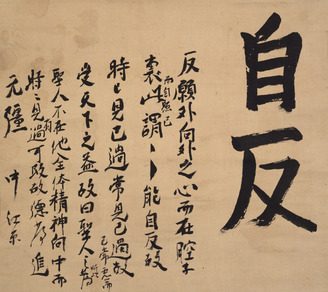 自反
反願外向外之心而在腔子
裏此謂〻能自反故
時〻見己過常見己過故
受天下之益故曰聖人之為
聖人不在他全体精神向中而
時〻見過可改故德進
无疆 中江原